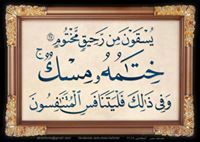 يُسْقَوْنَ مِن رَّحِيقٍ مَّخْتُومٍ ٢٥
خِتَٰمُهُۥ مِسْكٌ ۚ
وَفِى ذَٰلِكَ فَلْيَتَنَافَسِ ٱلْمُتَنَٰفِسُونَ